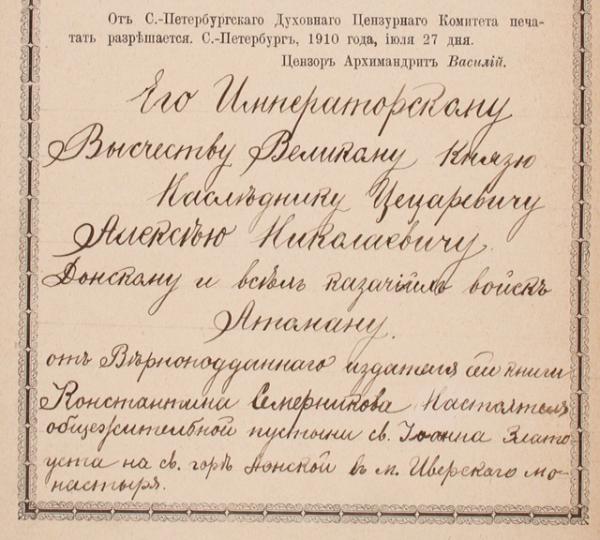 Отъ С.-Петербургскаго Духовнаго Цензурнаго Комитета печа-
тать разрѣшается. С.-Петербургъ, 1910 года, іюля 27 дня.
Цензоръ Архимандритъ Василій.
Его Императорскому
Высчеству Великану Князю
Наслѣднику Цецаревичу
Алексѣю Николаевичу.
Донскану и всѣмъ казачіимъ войскъ
Атаману.
отъ Вѣрноподданнаго издателя сей книги
Константина Семерникова Настоятеля
общежительной пустыни св. Іоанна Злато-
уста на св. горѣ Аѳонской въ м. Иверскаго мо-
настыря.